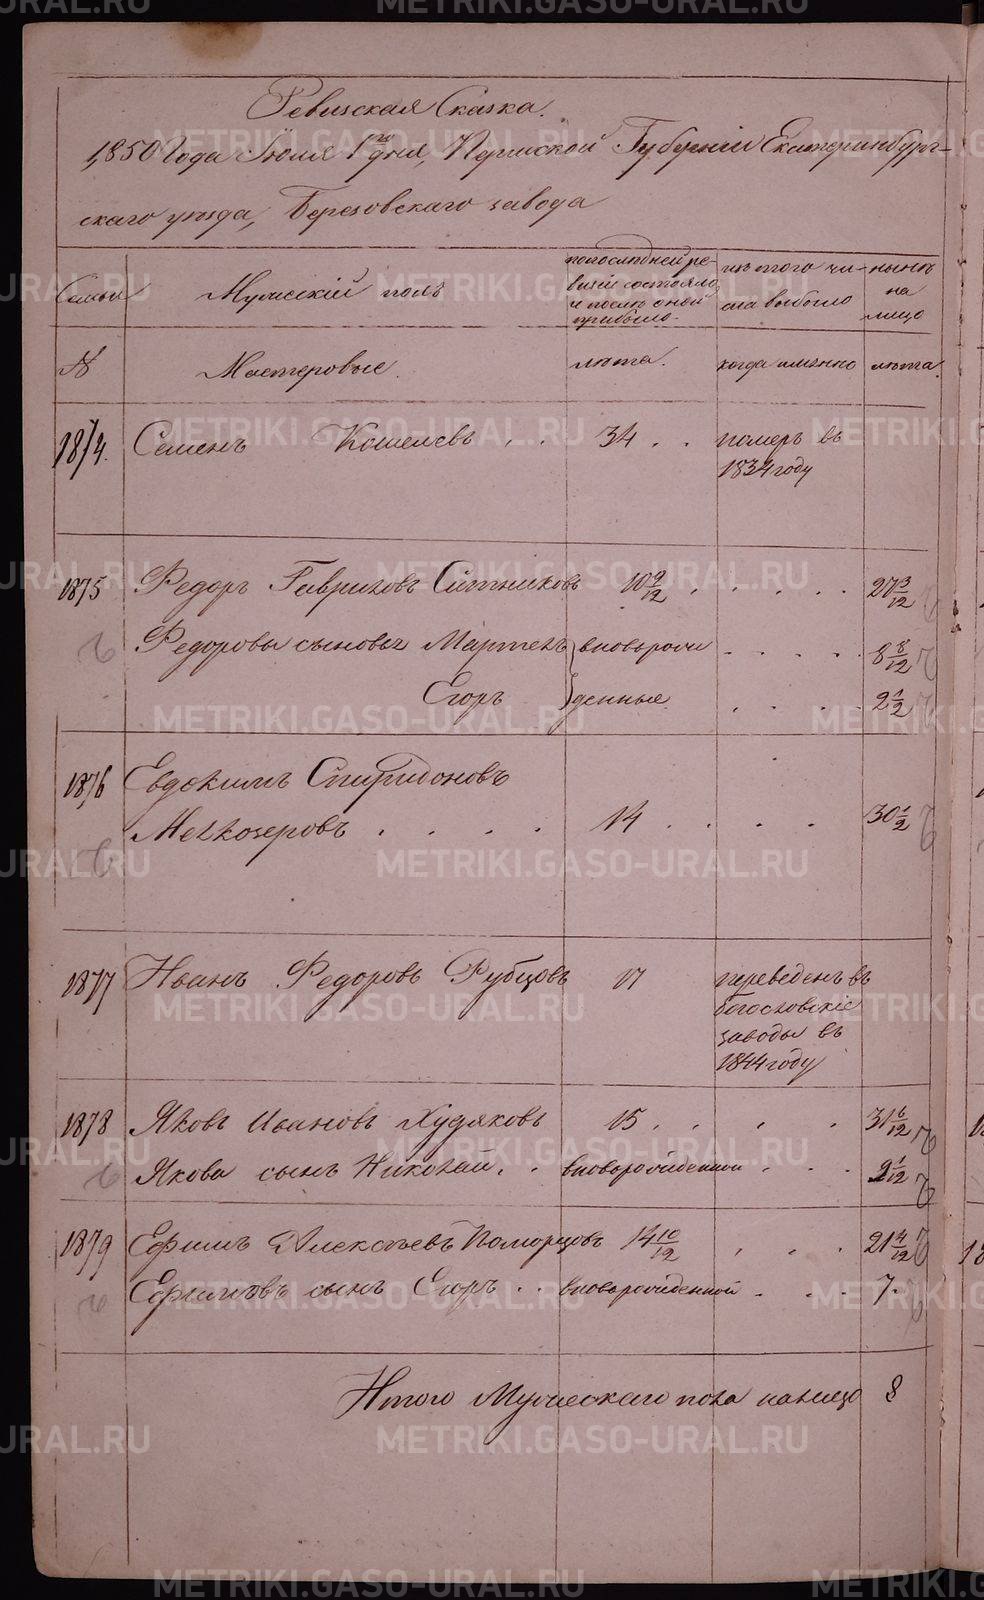 Ревизская Сказка.
1850 Года Июля 1го дня, Пермской Губерніи Екатеринбург-
скаго уезда, Березовскаго завода
Семьи
Мужескій полъ
попоследней ре-
визіи состояло
и после оной
прибыло.
изъ того чи-
сла выбыло
ныне
на
лицо
№
Мастеровые.
лета.
когда именно
лета.
1874. Семенъ Кошелевъ . . 34 . . померъ въ
1834 году
1875 Федоръ Гавриловъ Ситниковъ 10 9/12 . . . . . 27 3/12
Федоровы сыновья Мартенъ вноворож . . . . 8 8/12
Егоръ денные . . . . 2 1/2
1876 Евдокимъ Спиридоновъ
Мелкозеровъ . . . . 14 . . . . 30 1/2
1877 Иванъ Федоровъ Рубцовъ 17 переведенъ въ
Богословскіе
заводы въ
1844 году
1878 Яковъ Ивановъ Худяковъ 15 . . . . 31 6/12
Якова сынъ Николай . . вноворожденной . . . 2 1/12
1879 Ефимъ Алексеевъ Поморцовъ 14 10/12 . . . 21 4/12
Ефимовъ сынъ Егоръ . . вноворожденной . . . 7.
Итого Мужескаго пола налицо 8
METRIKI.GASO-URAL.RU